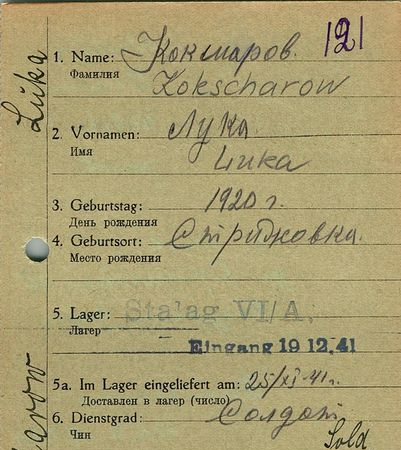 121
1. Name: Кокшаров.
Фамилия Kokscharow
2. Vornamen: Лука
Имя Luka
3. Geburtstag: 1920 г.
День рождения
4. Geburtsort: Стрижовка.
Место рождения
5. Lager: Stalag VI/A.
Лагер
Eingang 19 12.41
5a. Im Lager eingeliefert am: 25/XI-41 г.
Доставлен в лагер (число)
6. Dienstgrad: Солдат
Чин
Sold
Luka